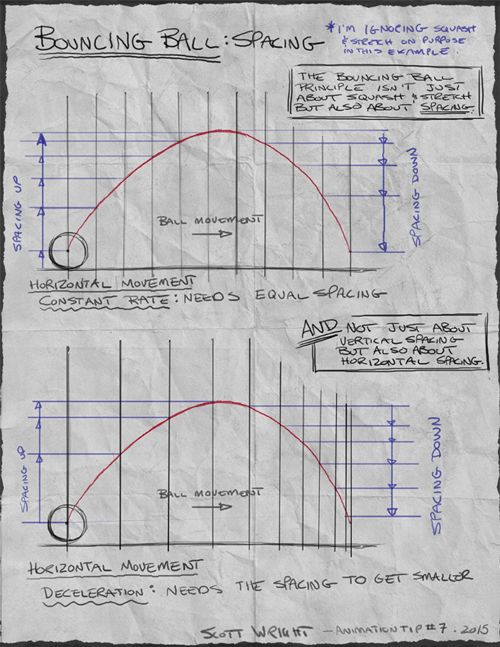 BOUNCING BALL: SPACING
*I'M IGNORING SQUASH
& STRETCH ON PURPOSE
IN THIS EXAMPLE.
THE BOUNCING BALL
PRINCIPLE ISN'T JUST
ABOUT SQUASH & STRETCH
BUT ALSO ABOUT SPACING.
SPACING UP
BALL MOVEMENT
SPACING DOWN
HORIZONTAL MOVEMENT
CONSTANT RATE: NEEDS EQUAL SPACING
AND NOT JUST ABOUT
VERTICAL SPACING
BUT ALSO ABOUT
HORIZONTAL SPACING.
SPACING UP
BALL MOVEMENT
SPACING DOWN
HORIZONTAL MOVEMENT
DECELERATION: NEEDS THE SPACING TO GET SMALLER
SCOTT WRIGHT - ANIMATION TIP #7. 2015